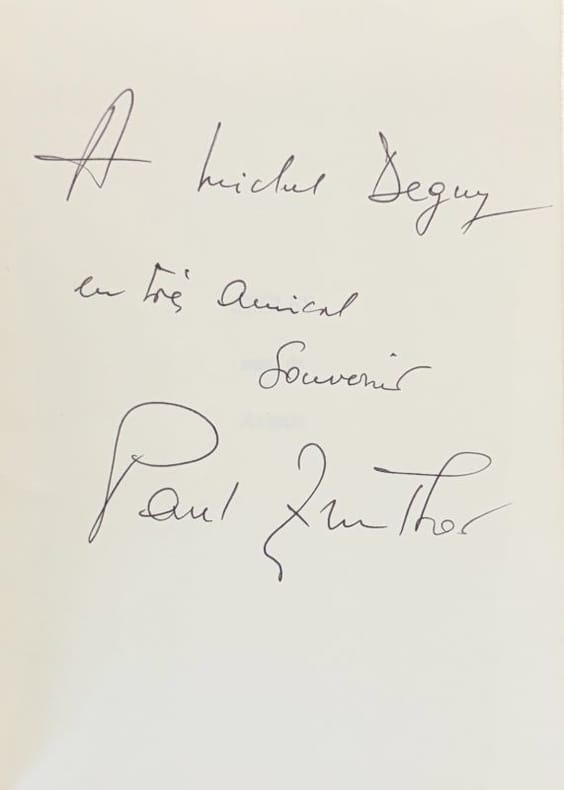 A Michel Deguy
en très amical
Souvenir
Paul Zumthor